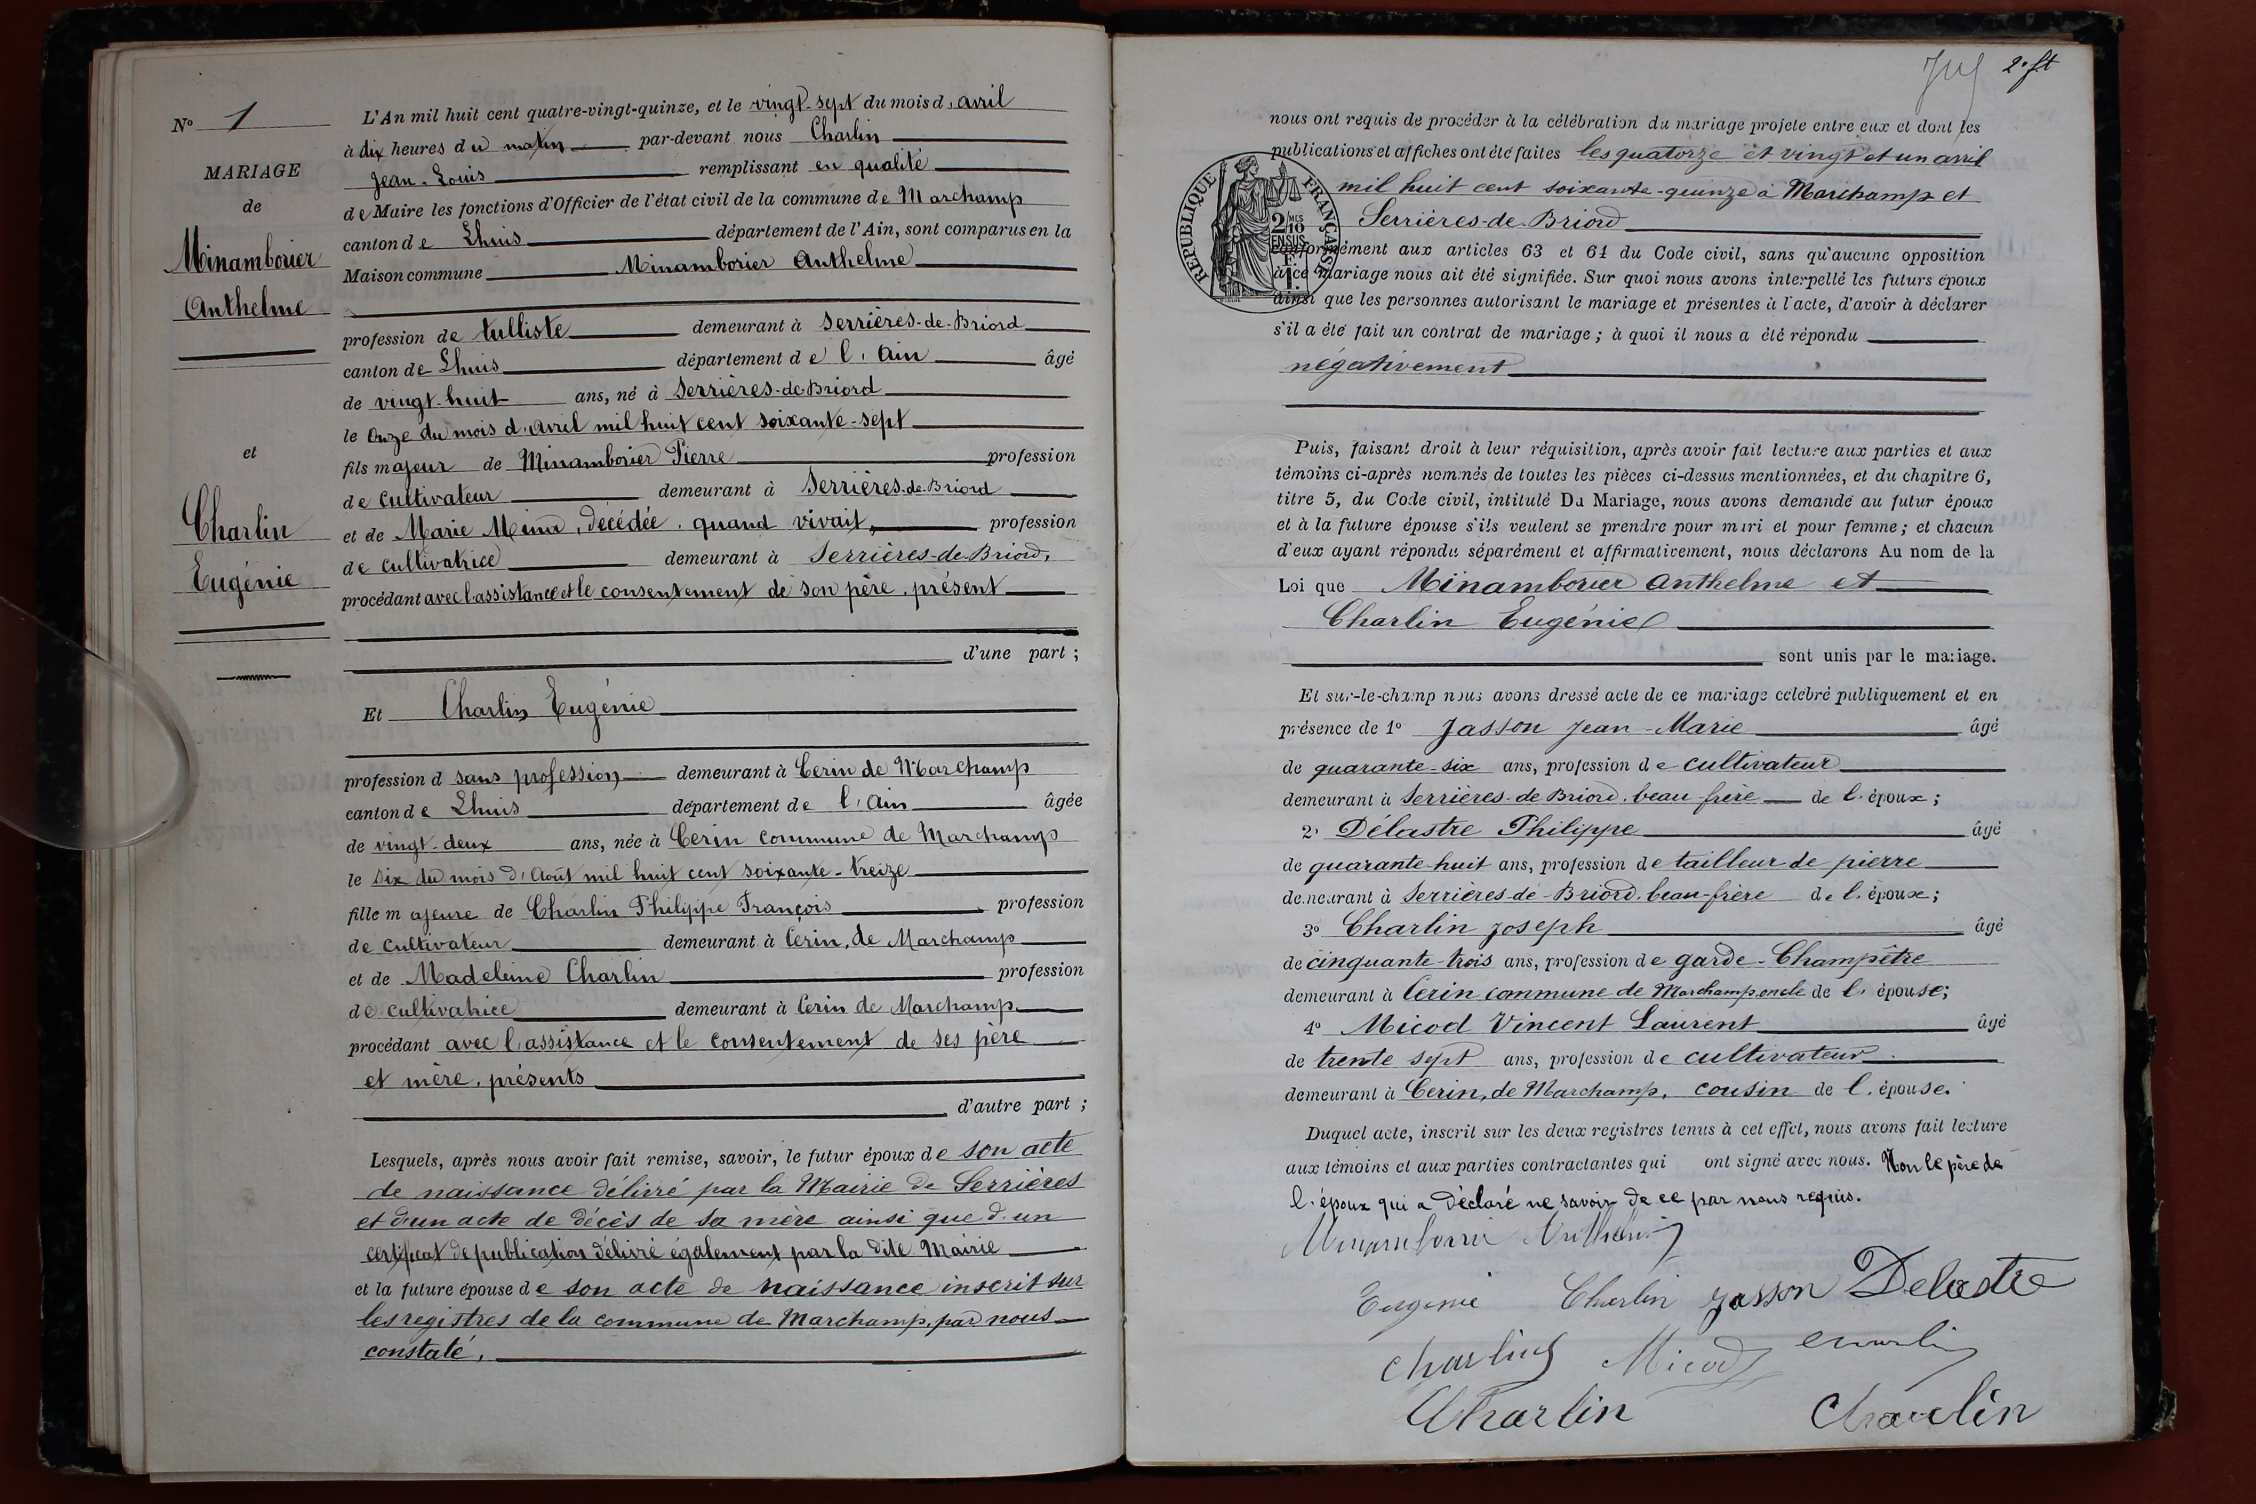 N° 1
MARIAGE
de
Minamborier
Anthelme
et
Charlin
Eugénie
L'An mil huit cent quatre-vingt-quinze, et le vingt-sept du mois d'avril
à dix heures du matin par-devant nous Charlin
Jean-Louis remplissant en qualité
de Maire les fonctions d'Officier de l'état civil de la commune de Marchamp
canton de Lhuis département de l'Ain, sont comparus en la
Maison commune Minamborier Anthelme
profession de tulliste demeurant à Serrières-de-Briord
canton de Lhuis département de l'Ain âgé
de vingt-huit ans, né à Serrières-de-Briord
le onze du mois d'avril mil huit cent soixante-sept
fils majeur de Minamborier Pierre profession
de cultivateur demeurant à Serrières-de-Briord
et de Marie, décédée, quand vivait, profession
de cultivatrice demeurant à Serrières-de-Briord,
procédant avec l'assistance et le consentement de son père, présent
d'une part ;
Et Charlin Eugénie
profession d sans profession demeurant à Cerin de Marchamp
canton de Lhuis département de l'Ain âgée
de vingt-deux ans, née à Cerin commune de Marchamp
le six du mois d'Août mil huit cent soixante-treize
fille majeure de Charlin Philippe François profession
de cultivateur demeurant à Cerin, de Marchamp
et de Madeleine Charlin profession
de cultivatrice demeurant à Cerin de Marchamp
procédant avec l'assistance et le consentement de ses père
et mère, présents
d'autre part ;
Lesquels, après nous avoir fait remise, savoir, le futur époux de son acte
de naissance délivré par la Mairie de Serrières
et d'un acte de décès de sa mère ainsi que d'un
certificat de publication délivré également par la dite Mairie
et la future épouse de son acte de naissance inscrit sur
les registres de la commune de Marchamp, par nous
constaté,
2e ft
nous ont requis de procéder à la célébration du mariage projeté entre eux et dont les
publications et affiches ont été faites les quatorze et vingt et un avril
mil huit cent soixante-quinze à Marchamp et
Serrières-de-Briord
RÉPUBLIQUE FRANÇAISE
2 MES
10
EN SUS
1 F.
conformément aux articles 63 et 64 du Code civil, sans qu'aucune opposition
à ice mariage nous ait été signifiée. Sur quoi nous avons interpellé les futurs époux
ainsi que les personnes autorisant le mariage et présentes à l'acte, d'avoir à déclarer
s'il a été fait un contrat de mariage ; à quoi il nous a été répondu
négativement
Puis, faisant droit à leur réquisition, après avoir fait lecture aux parties et aux
témoins ci-après nommés de toutes les pièces ci-dessus mentionnées, et du chapitre 6,
titre 5, du Code civil, intitulé Du Mariage, nous avons demandé au futur époux
et à la future épouse s'ils veulent se prendre pour mari et pour femme ; et chacun
d'eux ayant répondu séparément et affirmativement, nous déclarons Au nom de la
Loi que Minamborier Anthelme et
Charlin Eugénie
sont unis par le mariage.
Et sur-le-champ nous avons dressé acte de ce mariage célébré publiquement et en
présence de 1° Jasson Jean-Marie âgé
de quarante-six ans, profession de cultivateur
demeurant à Serrières-de-Briord, beau-frère de l'époux ;
2° Délastre Philippe âgé
de quarante-huit ans, profession de tailleur de pierre
demeurant à Serrières-de-Briord, beau-frère de l'époux ;
3° Charlin Joseph âgé
de cinquante-trois ans, profession de garde-Champêtre
demeurant à Cerin commune de Marchamp oncle de l'épouse ;
4° Micod Vincent Laurent âgé
de trente sept ans, profession de cultivateur
demeurant à Cerin, de Marchamp, cousin de l'épouse.
Duquel acte, inscrit sur les deux registres tenus à cet effet, nous avons fait lecture
aux témoins et aux parties contractantes qui ont signé avec nous. Non le père de
l'époux qui a déclaré ne savoir de ce par nous requis.
Minamborier Anthelme
Eugénie Charlin Jasson Delastre
Charlin Micod Charlin
Charlin Charlin